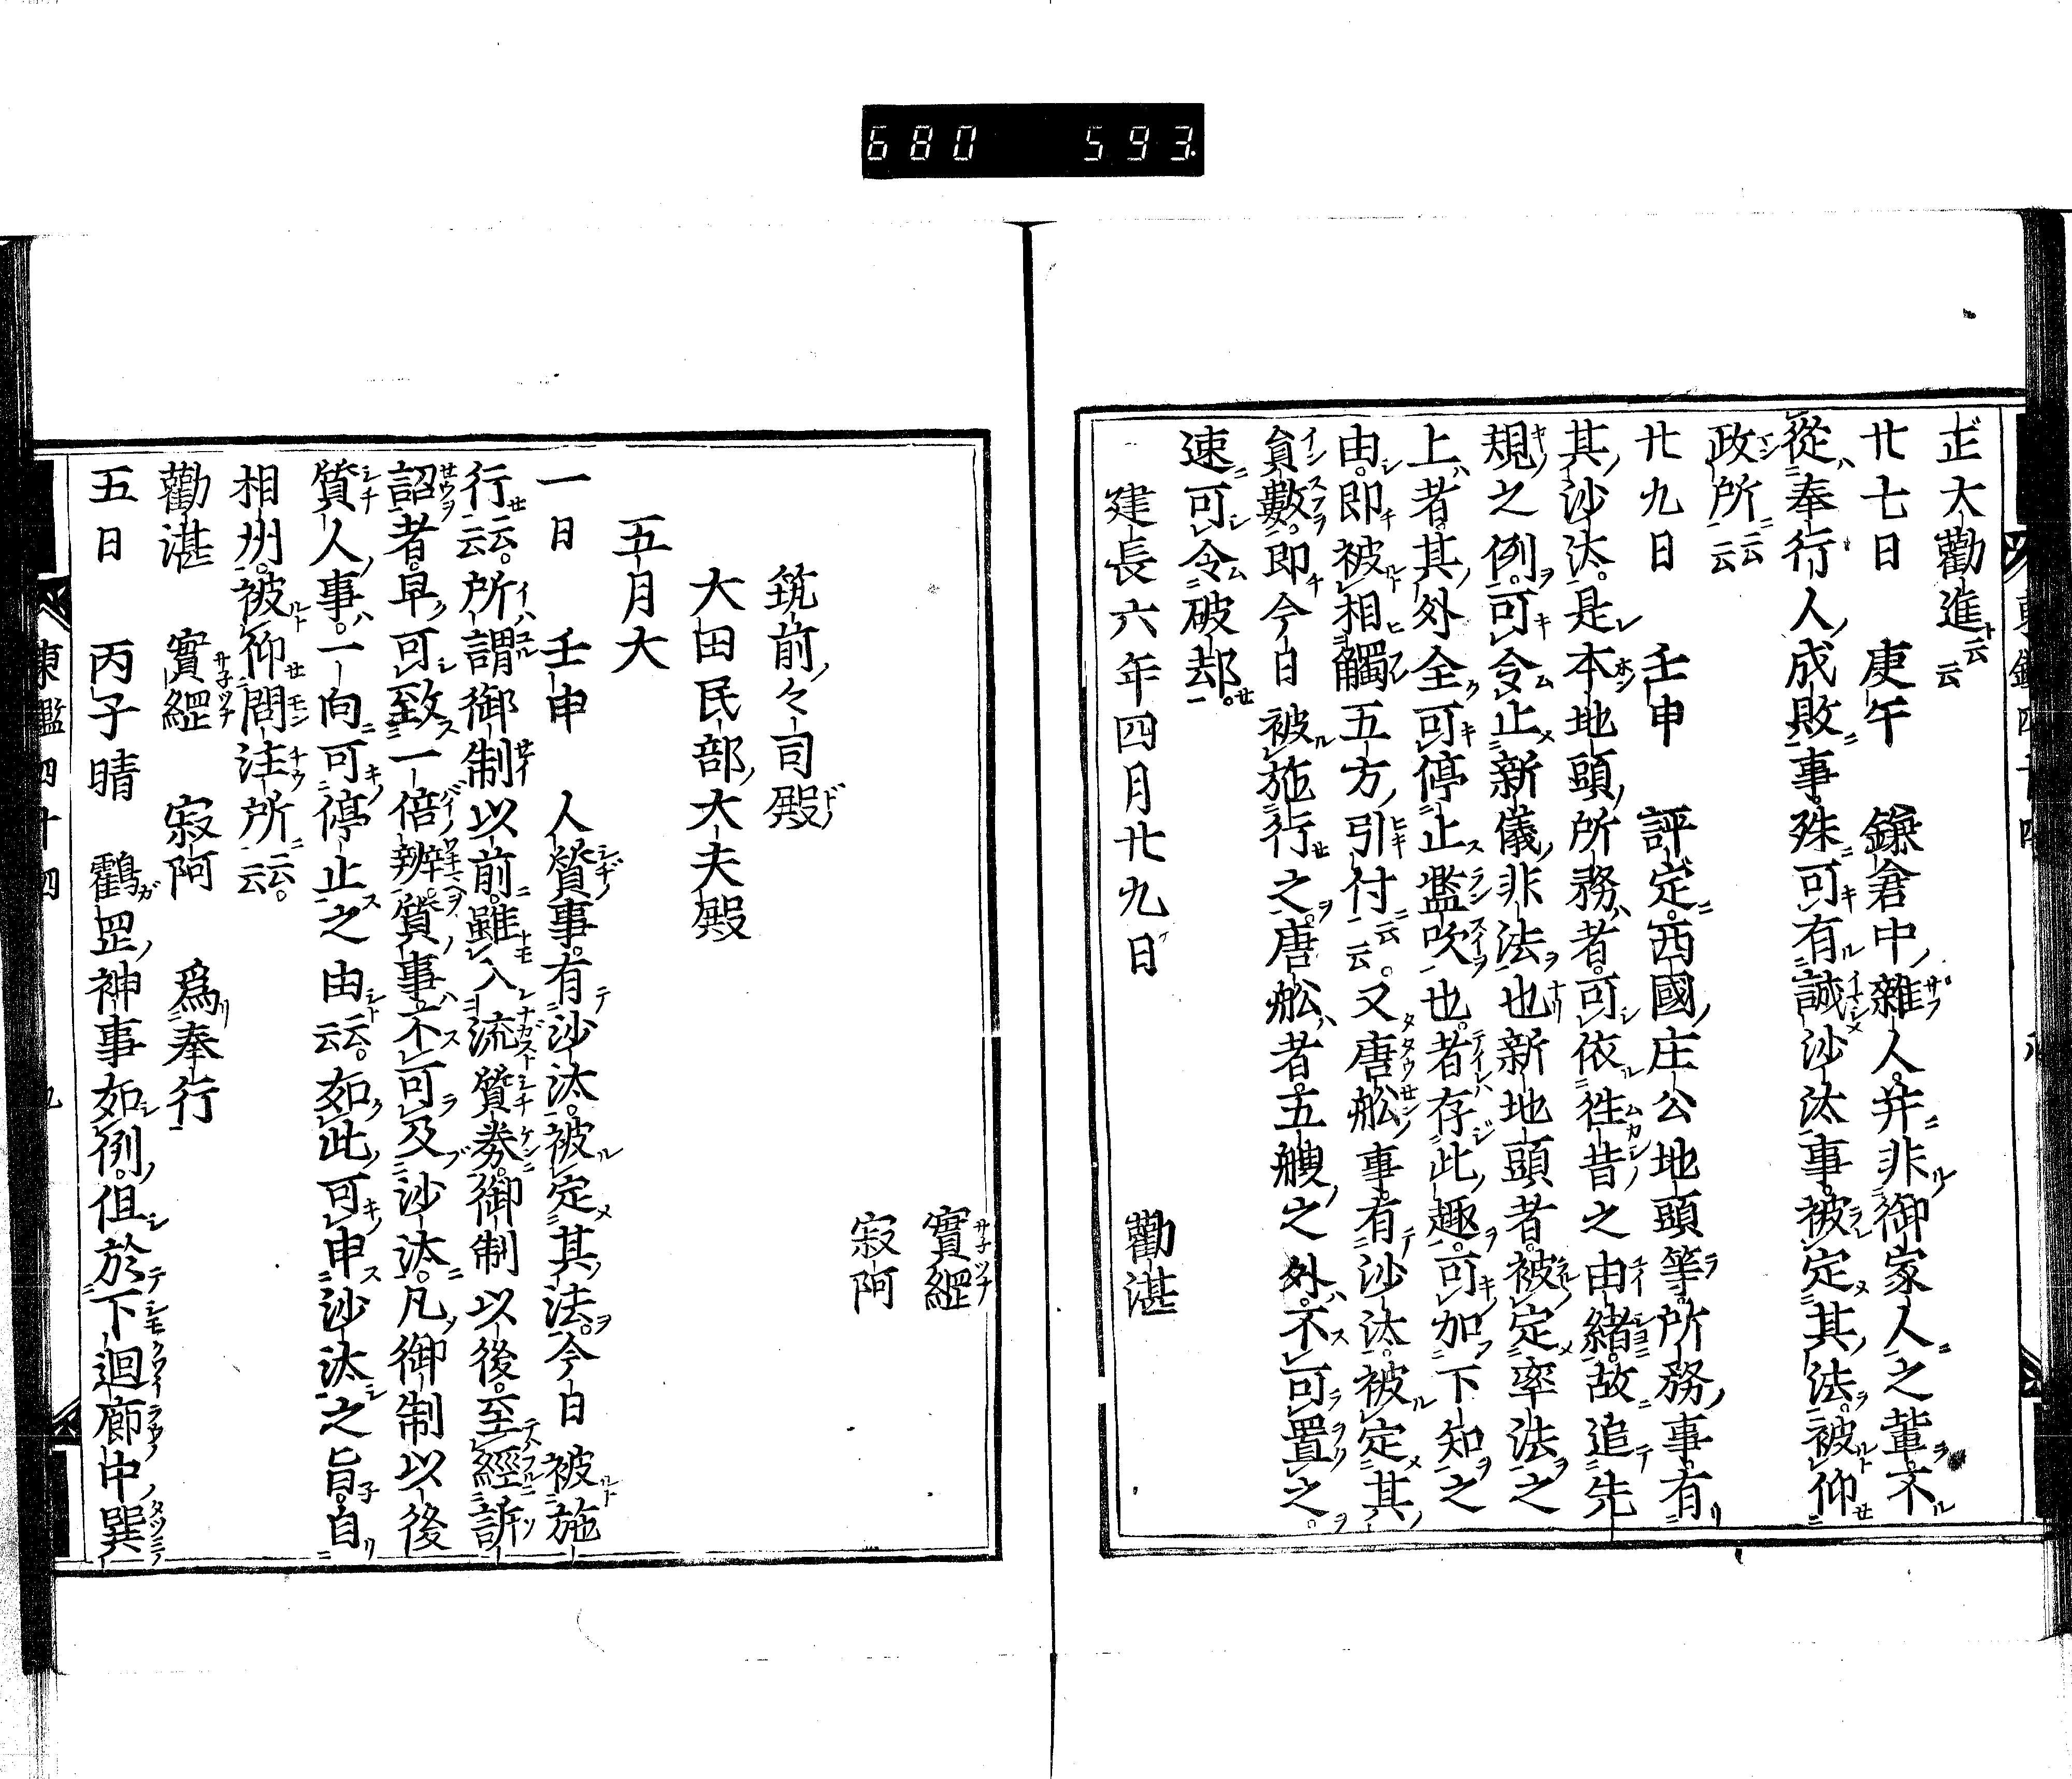 680 593
正大勸進云云
廿七日 庚午 鎌倉中雜人。并非御家人之輩。不
從奉行人成敗事。殊可有誡沙汰事。被定其法。被仰
政所云云
廿九日 壬申 評定。西國庄公地頭等。所務事。有
其沙汰。是本地頭所務者。可依徃昔之由緒。故追先
規之例。可令止新儀非法也新地頭者。被定率法之
上者。其外全可停止濫吹也。者存此趣。可加下知之
由。即被相觸五方引付云云。又唐舩事。有沙汰。被定其
員數。即今日被施行之。唐舩者。五艘之外。不可置之。
速可令破却。
建長六年四月廿九日 勸湛
實綱
寂阿
筑前々司殿
大田民部大夫殿
五月大
一日 壬申 人質事。有沙汰。被定其法。今日被施
行云云。所謂御制以前。雖入流質券。御制以後。至經訴
詔者。早可致一倍辨。質事。不可及沙汰。凡御制以後
質人事。一向可停止之由云云。如此可申沙汰之旨。自
相州。被仰問注所云云。
勸湛 實綱 寂阿 爲奉行
五日 丙子晴 鶴罡神事如例。但於下迴廊中巽
東鑑四十四 九